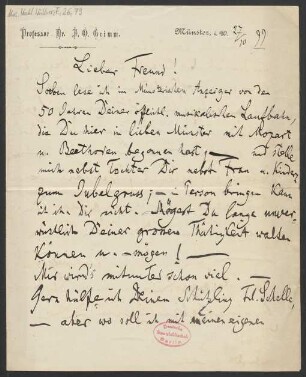 Professor Dr. J. O. Grimm.
Münster, i. W. 27/10 99
Lieber Freund!
Soeben lese ich im Münsterischen Anzeiger von den
50 Jahren Deiner öffentl. musikalischen Laufbahn,
die Du hier im lieben Münster mit Mozart
u. Beethoven begonnen hast; — und stelle
mich nebst Tochter Dir nebst Frau u. Kinder
zum Jubelgruss; — in Person bringen kann
ich ihn Dir nicht. — Mögest Du lange unver-
wüstlich Deiner grossen Thätigkeit walten
können u. — mögen! —
Mir wird's mitunter schon viel. —
Gern hülfe ich Deinem Schützling Frl. Schelle,
— aber wo soll ich mit meiner eigenen